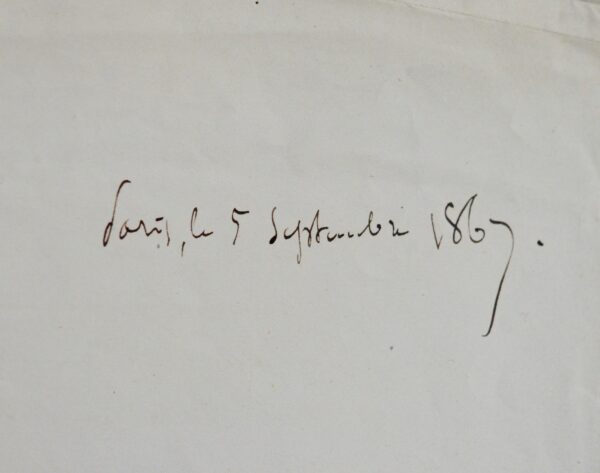 Paris, le 5 Septembre 1867.